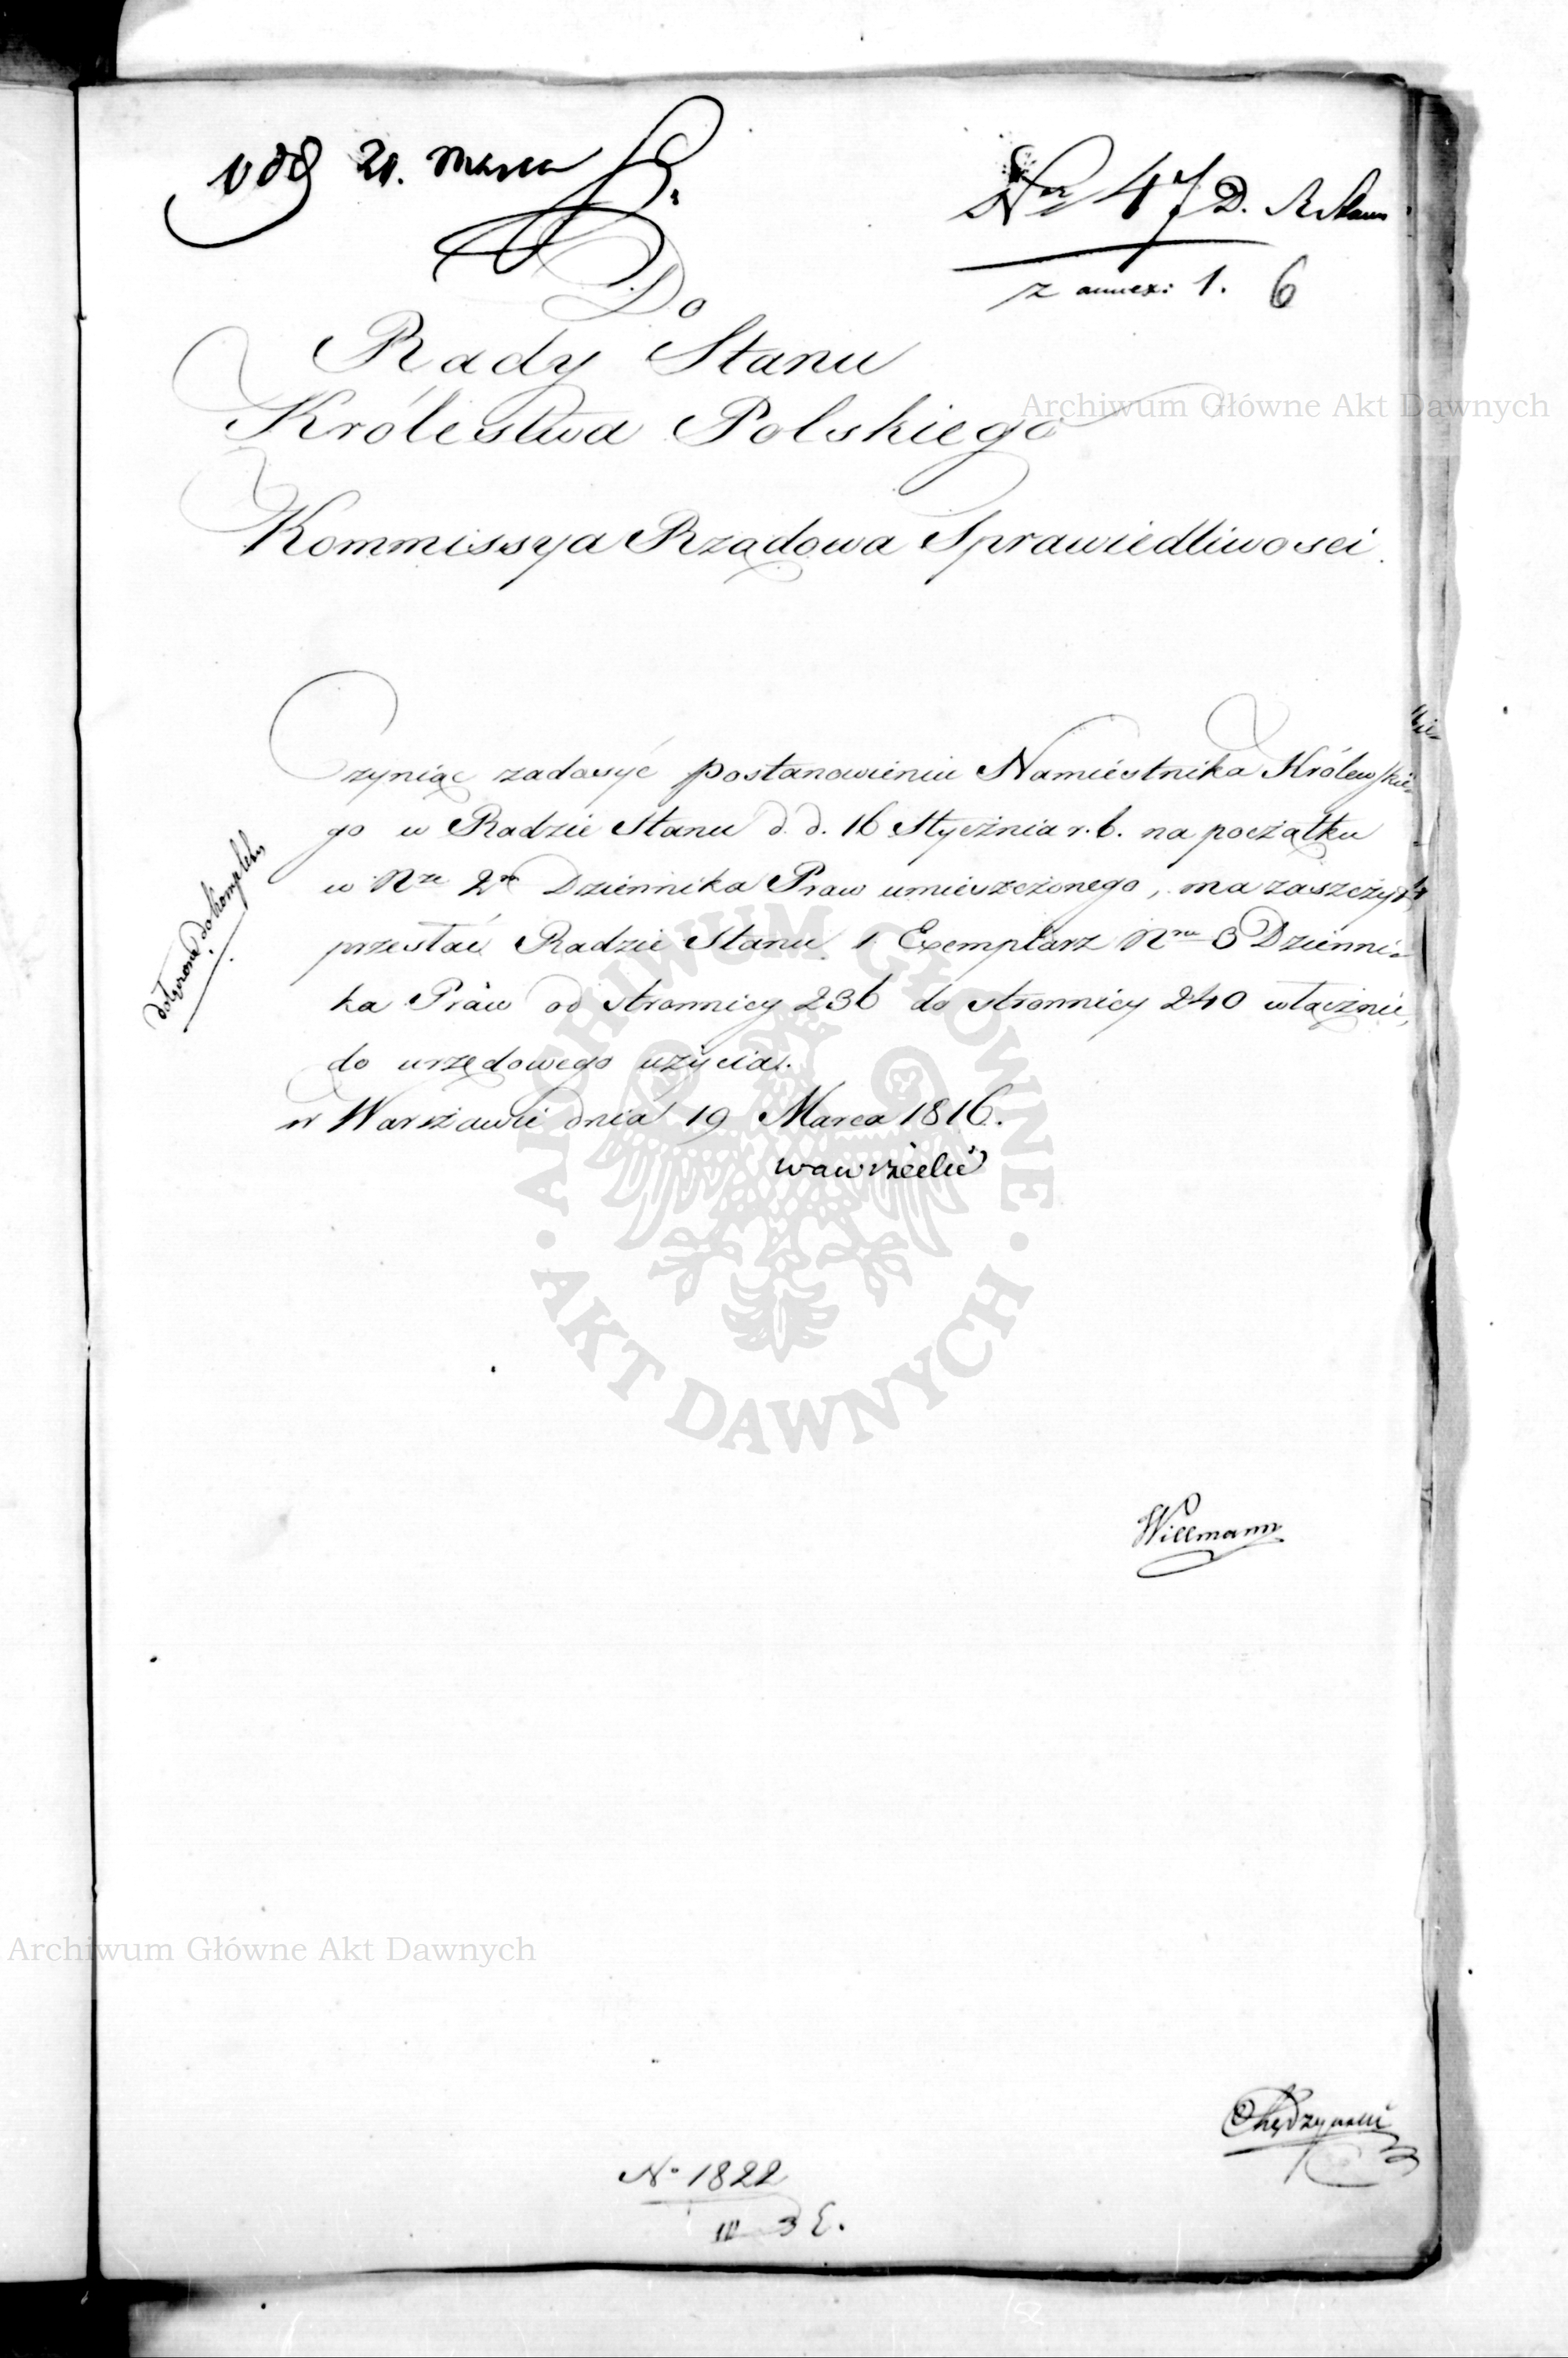 21. Marca
Nro 47 D. R. Stanu
z annex: 1. 6
Do
Rady Stanu
Królestwa Polskiego
Archiwum Główne Akt Dawnych
Kommissya Rządowa Sprawiedliwosci.
Czyniąc zadosyć postanowieniu Namiestnika Królewskie-
go w Radzie Stanu d. d. 16 Stycznia r. b. na początku
w Nrze 2m Dziennika Praw umieszczonego, ma zaszczyt
przesłać Radzie Stanu 1 Exemplarz Nru 3 Dzienni-
ka Praw od stronnicy 236 do stronnicy 240 włącznie,
do urzędowego użycia.
w Warszawie dnia 19 Marca 1816.
Wawrzecki
dołączono do kompletu
ARCHIWUM GŁÓWNE
AKT DAWNYCH
Willmann
Archiwum Główne Akt Dawnych
Chędzynski
No 1822
3 E.